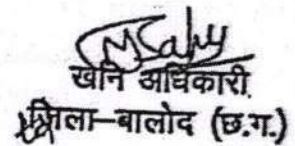 खनि अधिकारी
जिला-बालोद (छ.ग.)